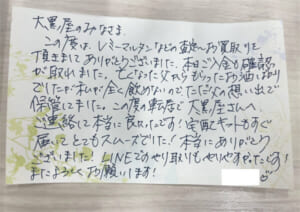 大黒屋のみなさま
この度は、レミーマルタンなどの査定、お買取りを
頂きましてありがとうございました。本日ご入金も確認
が取れました。亡くなった父からもらったお酒ばかり
でしたが私が全く飲めないのでただただ父の想い出で
保管してました。この度の転居で大黒屋さんへ
ご連絡して本当に良かったです!宅配キットもすぐ
届いてとてもスムーズでした!本当にありがとう
ございました!LINEでのやり取りもわかりやすかったです!
またよろしくお願いします!